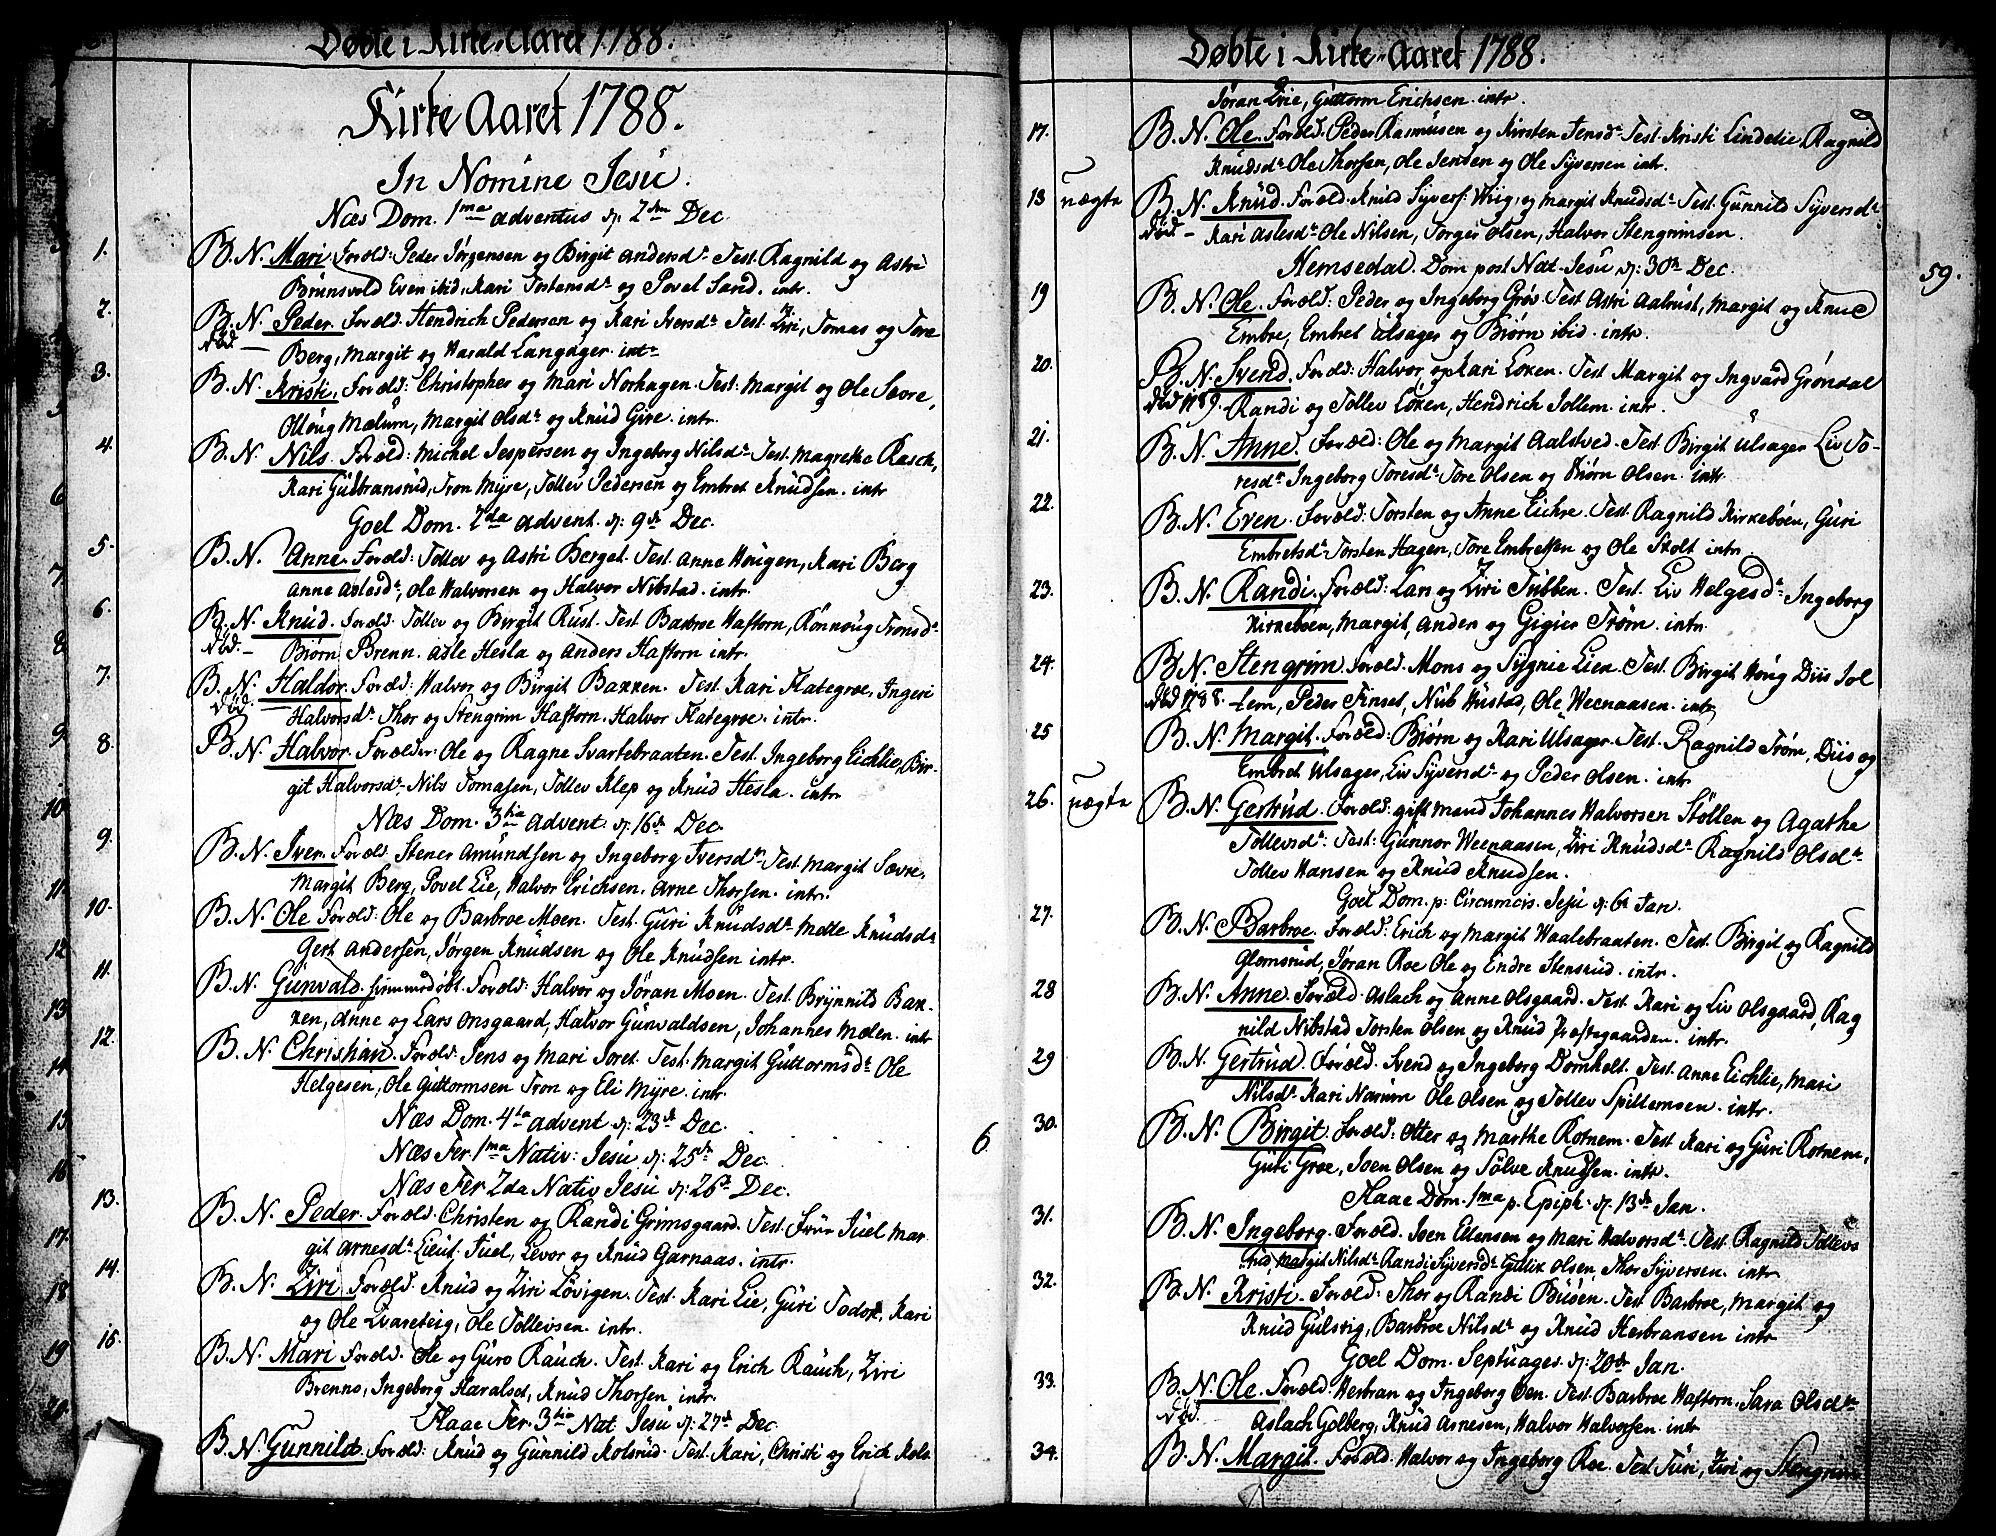 Døbte i Kirke-Aaret 1788.
Kirke Aaret 1788.
In Nomine Jesu.
Næs Dom. 1ma adventus d: 2den Dec
1. B. N. Mari Foræld: Peder Jørgensen og Birgit Andersdr Test. Ragnild og Astri
Brunsvold Even ibid, Kari Tostensdr og Povel Sand. intr.
2. B. N. Peder. Foræld. Hendrich Pedersen og Kari Iversdr Test. Ziri, Tomas og Tore
død — Berg, Margit og Harald Langager. intr
3. B. N. Kristi. Foræld: Christopher og Mari Norhagen. Test: Margit og Ole Sevre,
Olloug Mælum, Margit Olsdr og Knud Gire. intr.
4. B. N. Nils. Foræld: Michel Jespersen og Ingeborg Nilsdr Test. Magrethe Rasch,
Kari Gulbransrud, Tron Myre, Tollev Pedersen og Embret Knudsen. intr
Goel Dom. 2da advent. d: 9de Dec.
5. B. N. Anne. Foræld: Tollev og Astri Berget. Test. Anne Hougen, Kari Berg
Anne Aslesdr, Ole Halvorsen og Halvor Nibstad. intr.
6. B. N. Knud. Foræld: Tollev og Birgit Rust. Test Barbroe Haftorn, Rønnoug Tronsdr
død. — Biørn Brenn. Asle Hesla og Anders Haftorn intr.
7. B. N. Haldor. Foræld: Halvor og Birgit Bakken. Test. Kari Flategroe, Ingeri
død. Halvorsdr Thor og Stengrim Haftorn. Halvor Flategroe. intr.
8. B. N. Halvor. Forælder: Ole og Ragne Svartebraaten. Test. Ingeborg Eichlie, Bir-
git Halvorsdr Nils Tomasen, Tollev Klep og Knud Hesla. intr
Næs Dom. 3tia advent. d: 16de Dec.
9. B. N. Iver. Foræld Stener Amundsen og Ingeborg Iversdr Test. Margit Sævre,
Margit Berg, Povel Lie, Halvor Erichsen. Arne Thorsen. intr.
10. B. N. Ole Foræld: Ole og Barbroe Moen. Test. Guri Knudsdr Mette Knudsdr
Gert Andersen, Jørgen Knudsen og Ole Knudsen intr.
11. B. N. Gunvald. hjemmedøbt. Foræld: Halvor og Jøran Moen. Test. Brynnild Bak-
ken, Anne og Lars Onsgaard, Halvor Gunvaldsen, Johannes Mælen. intr
12. B. N. Christian. Foræld: Jens og Mari Joret. Test. Margit Guttormsdr Ole
Helgesen, Ole Guttormsen Tron og Eli Myre. intr.
Næs Dom. 4ta advent d: 23de Dec.
Næs Fer. 1ma Nativ: Jesu d: 25de Dec.
Næs Fer 2da Nativ Jesu d: 26de Dec.
13. B. N. Peder. Foræld. Christen og Randi Grimsgaard. Test. Frue Juel Mar
git Arnesdr Lieut. Juel, Levor og Knud Garnaas. intr.
14. B. N. Ziri Foræld. Knud og Ziri Løvigen. Test. Kari Lie, Guri Todok, Kari
og Ole Kvareteig, Ole Tollevsen. intr.
15. B. N. Mari Foræld. Ole og Guro Rauch. Test. Kari og Erich Rauch, Ziri
Brenno, Ingeborg Haralset, Knud Thorsen intr.
Flaae Fer. 3tia Nat. Jesu d: 27de Dec
B. N. Gunnild. Foræld. Knud og Gunnild Kolsrud. Test. Kari, Christi og Erich Kols
6
Døbte i Kirke-Aaret 1788.
59.
Jøran Lie, Guttorm Erichsen. intr.
17. B. N. Ole. Foræld. Peder Rasmusen og Kirsten Jensdr Test. Kristi Lindelie, Ragnild
Knudsdr Ole Thorsen, Ole Jensen og Ole Syversen intr.
18 uægte B. N. Knud. Foræld. Knud Syvers: Wiig, og Margit Knudsdr Test. Gunnild Syversdr
død — Kari Aslesdr Ole Nilsen, Torger Olsen, Halvor Stengrimsen.
Hemsedal. Dom post Nat. Jesu d: 30te Dec.
19 B. N. Ole. Foræld. Peder og Ingeborg Grøv Test. Astri Aalrust, Margit og Knud
Embre, Embret Ulsager og Biørn ibid. intr.
20. B. N. Svend. Foræld: Halvor og Kari Loken. Test Margit og Ingvard Grøndal
død 1789. Randi og Tollev Loken, Hendrich Jollem. intr.
21. B. N. Anne. Foræld: Ole og Margit Aalstved. Test. Birgit Ulsager Liv To-
resdr Ingeborg Toresdr Tore Olsen og Biørn Olsen. intr
22. B. N. Even. Foræld: Torsten og Anne Eichre. Test Ragnild Kirkebøen, Guri
Embretsdr Torsten Hagen, Tore Embretsen og Ole Stolt intr
23. B. N. Randi. Foræld: Lars og Ziri Tubben. Test. Liv Helgesdr Ingeborg
Kirkebøen, Margit, Anders og Gigier Trøm. intr
24 B. N. Stengrim Foræld. Mons og Sygnie Lien. Test. Birgit Houg Diis Jol
død 1788. lem, Peder Finset, Nub Hustad, Ole Weenaasen. intr
25 B. N. Margit. Foræld: Biørn og Kari Ulsager. Test. Ragnild Trøm, Diis og
Embret Ulsager, Liv Syversdr og Peder Olsen. intr
26. uægte B. N. Gertrud. Foræld: gift Mand Johannes Halvorsen Støllen og Agathe
Tollevsdr. Test: Gunnor Weenaasen, Ziri Knudsdr Ragnild Olsdr
Tollev Hansen og Knud Knudsen.
Goel Dom. p: Circumcis. Jesu d: 6te Jan.
27. B. N. Barbroe. Foræld: Erich og Margit Haalebraaten. Test. Birgit og Ragnild
Glomsrud, Jøran Roe Ole og Endre Stensrud. intr.
28 B. N. Anne. Foræld. Aslach og Anne Olsgaard. Test. Kari og Liv Olsgaard, Rag
nild Nibstad Torsten Olsen og Knud Præstegaarden. intr.
29 B. N. Gertrud. Foræld. Svend og Ingeborg Domhelt. Test. Anne Eichlie, Mari
Nilsdr Kari Narum Ole Olsen og Tollev Spillemsen. intr.
30. B. N. Birgit. Foræld: Otter og Marthe Rotnem. Test. Kari og Guri Rotnem,
Guri Groe, Joen Olsen og Sølve Knudsen. intr.
Flaae Dom. 1ma p. Epiph. d. 13de Jan.
31. B. N. Ingeborg. Foræld. Joen Ellensen og Mari Halvorsdr. Test. Ragnild Tollevs
rud, Margit Nilsdr Randi Syversdr Gullik Olsen, Thor Syversen. intr
32. B. N. Kristi. Foræld: Thor og Randi Buøen. Test Barbroe, Margit og
Knud Gulsvig, Barbroe Nilsdr og Knud Herbransen intr
Goel Dom. Septuages. d: 20de Jan.
33. B. N. Ole. Foræld. Herbran og Ingeborg Øen. Test. Barbroe Haftorn. Sara Olsdr
død. Aslach Golberg, Knud Arnesen, Halvor Halvorsen. intr
34. B. N. Margit. Foræld. Halvor og Ingeborg Roe. Test. Turi, Ziri og Stengrim